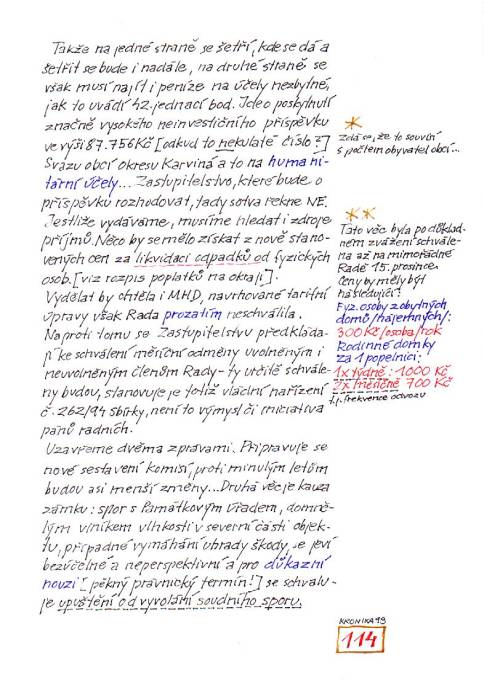 Takže na jedné straně se šetří, kde se dá a
šetřit se bude i nadále, na druhé straně se
však musí najít i peníze na účely nezbytné,
jak to uvádí 42. jednací bod. Jde o poskytnutí
značně vysokého neinvestičního příspěvku
ve výši 87.756 Kč [odkud to nekulaté číslo?]
Svazu obcí okresu Karviná a to na humani-
tární účely... Zastupitelstvo, které bude o
příspěvku rozhodovat, tady sotva řekne NE.
Jestliže vydáváme, musíme hledat i zdroje
příjmů. Něco by se mělo získat z nově stano-
vených cen za likvidaci odpadků od fyzických
osob. [viz rozpis poplatků na okraji].
Vydělat by chtěla i MHD, navrhované tarifní
úpravy však Rada prozatím neschválila.
Naproti tomu se Zastupitelstvu předklá­da-
jí ke schválení měsíční odměny uvolněným i
neuvolněným členům Rady - ty určitě schvále-
ny budou, stanovuje je totiž vládní nařízení
č. 262/94 Sbírky, není to výmysl či iniciativa
pánů radních.
Uzavřeme dvěma zprávami. Připravuje se
nové sestavení komisí, proti minulým letům
budou asi menší změny... Druhá věc je kauza
zámku: spor s Památkovým úřadem, domně-
lým viníkem vlhkosti v severní části objek-
tu, případné vymáhání úhrady škody, se jeví
bezúčelné a neperspektivní a pro důkazní
nouzi [pěkný právnický termín!] se schvalu-
je upuštění od vyvolání soudního sporu.
*
Zdá se, že to souvisí
s počtem obyvatel obcí...
**
Tato věc byla po důklad-
ném zvážení schvále-
na až na mimořádné
Radě 15. prosince.
Ceny by měly být
následující:
Fyz. osoby z obytných
domů /nájemných/:
300 Kč/osoba/rok
Rodinné domky
za 1 popelnici:
1x týdně: 1000 Kč
2x měsíčně 700 Kč
t.j. frekvence odvozu
KRONIKA 93
114